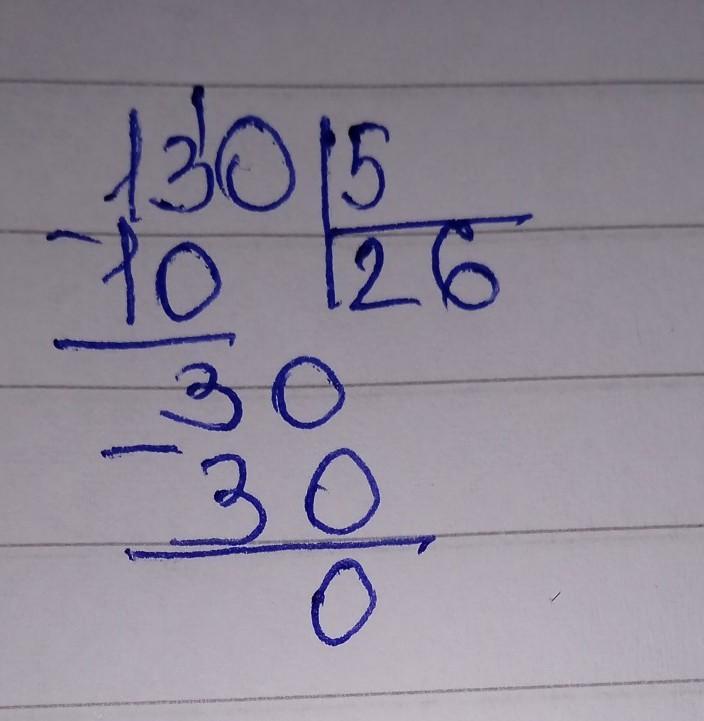 130 5
-10 26
30
-30
0